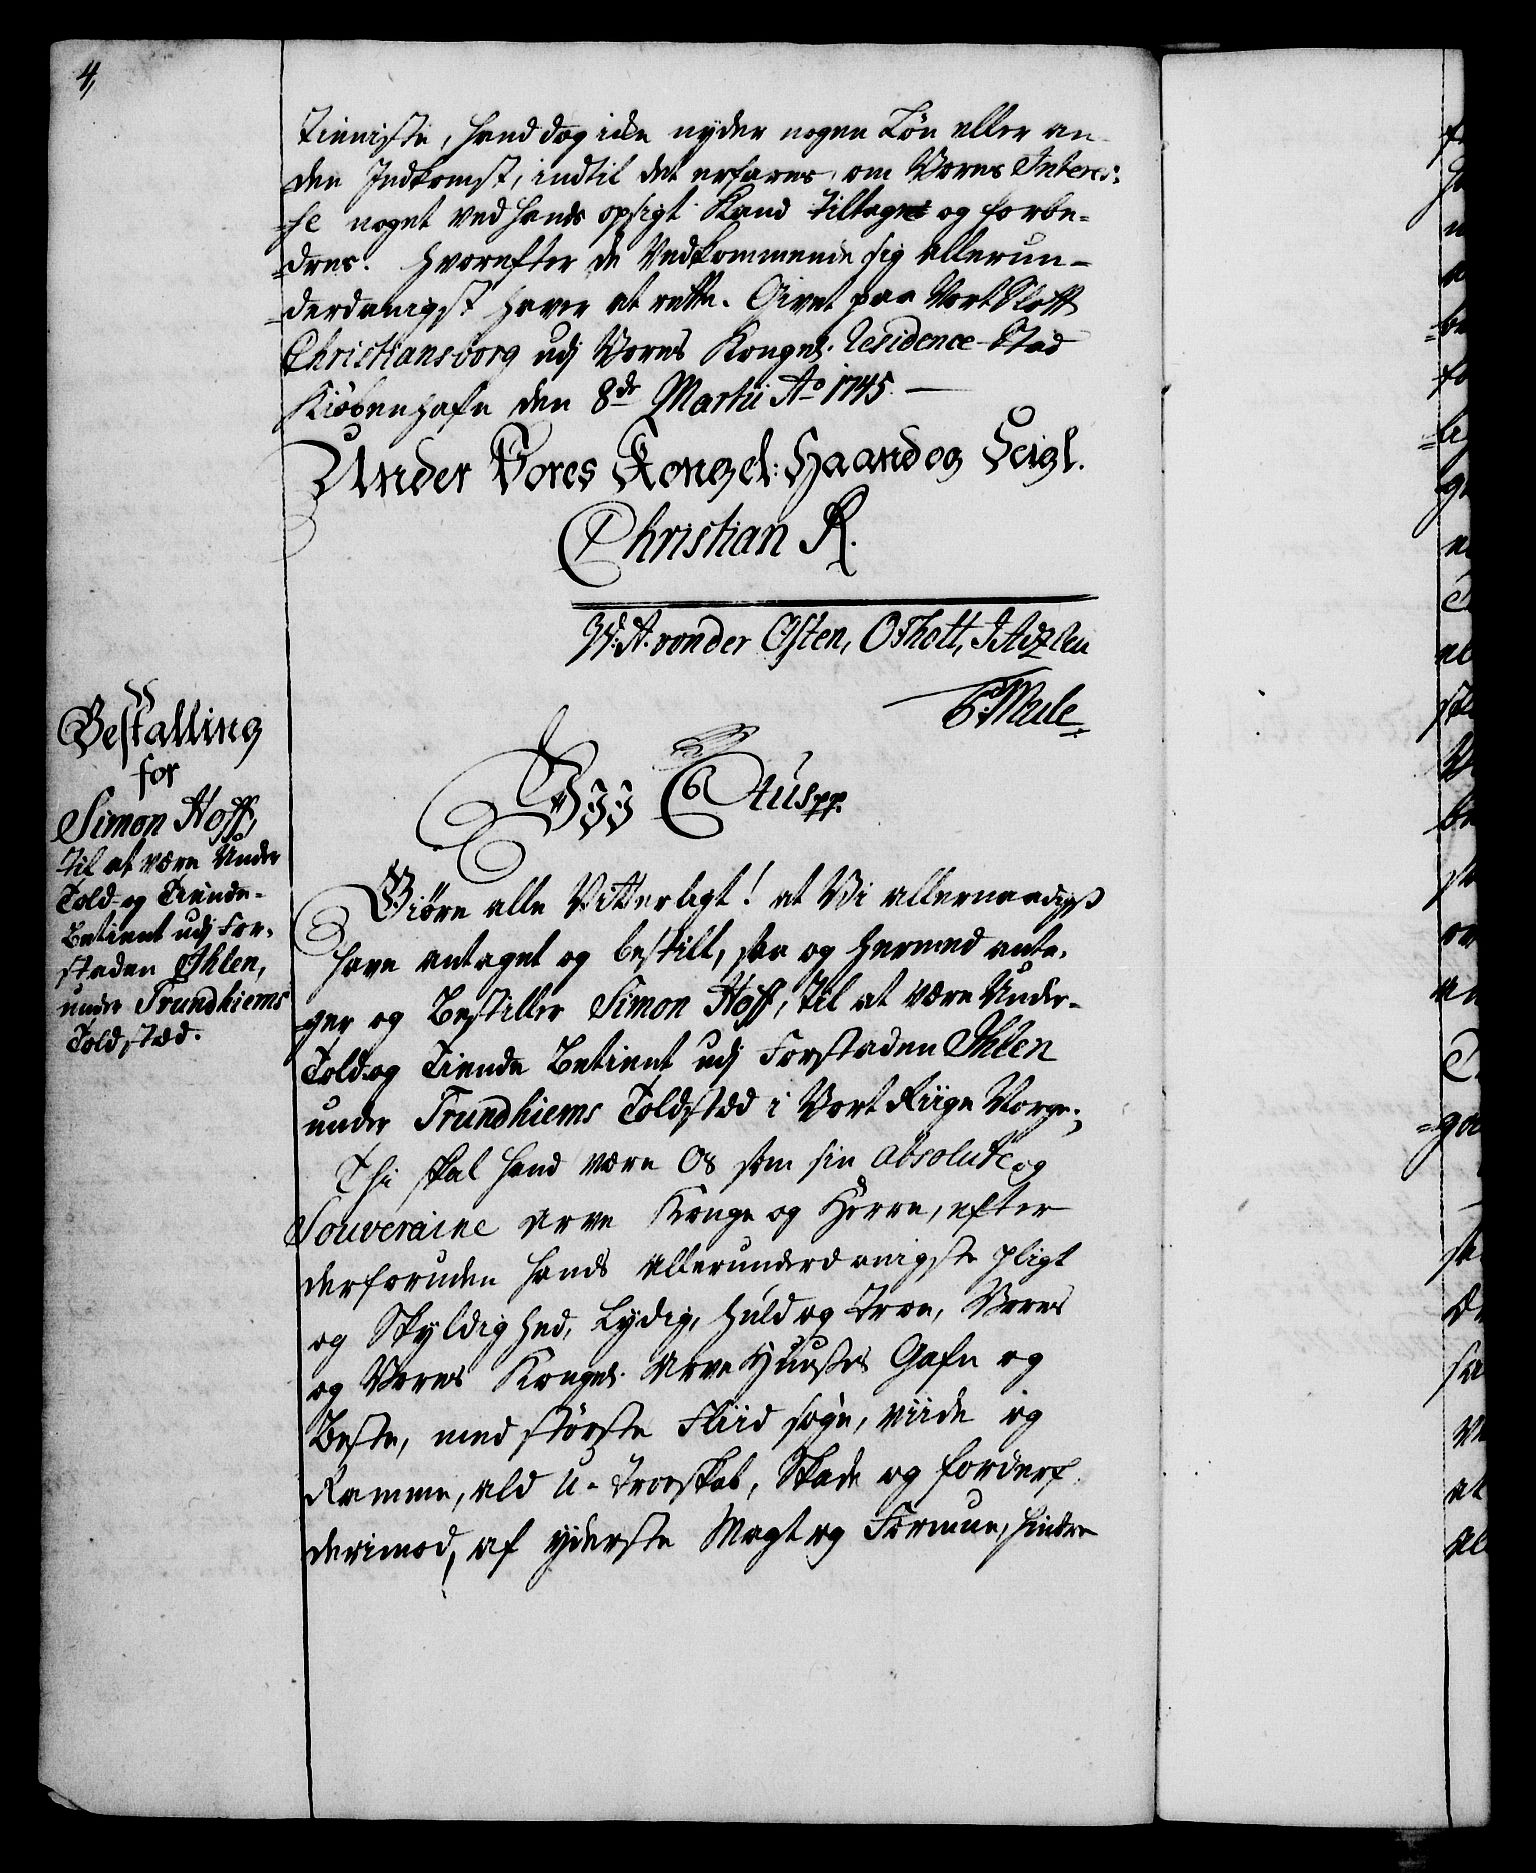 4,
tienniste, hand dog icke nyder nogen Løn eller an-
den Indkomst, indtil det erfares, om Vores Interes-
-se noget ved hands opsigt kand tiltages og forbe-
-dres. Hvorefter de Vedkommende sig allerun-
-derdanigst haver at rette. Givet paa Vort Slott
Christiansborg udj Vores Kongel. Residence-Stad
Kiøbenhafn den 8de Martii Ao 1745. —
Under Vores Kongel: Haand og Seigl.
Christian R.
W: A: von der Osten, O Thott,
Bestalling
for
Simon Hoff,
til at være Under
Told- og Tiende-
Betient udj For-
staden Ihlen,
under Trundhiems
Toldstæd.
Vii C 6tus pp.
Giøre alle Vitterligt! at Vi allernaadigst
have antaget og bestilt, saa og hermed anta-
ger og bestiller Simon Hoff, til at være Under-
Told- og Tiende Betient udj Forstaden Ihlen
under Trundhiems Toldstæd i Vort Riige Norge;
Thi skal hand være Os som sin absolute og
Souveraine Arve Konge og Herre, efter
derforuden hands allerunderdanigste pligt
og Skyldighed, Lydig, huld og troe, Vores
og Vores Kongel. Arve Huuses Gafn og
Beste, med største Fliid søge, viide og
Ramme, ald U-troeskab, Skade og forderf
derimod, af yderste Magt og Formue, hindre